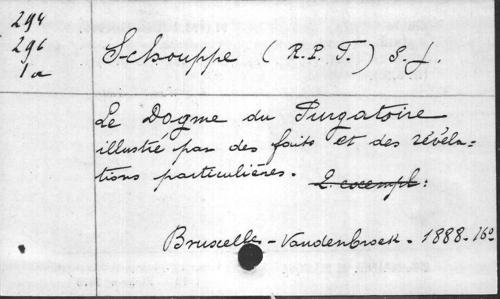 294
296
1a
Schouppe (R. P. F.) S. J.
Le Dogme du Purgatoire
illustré par des faits et des révéla=
tions particulières. 2. exempl:
Bruxelles - Vandenbroek - 1888 - 16º